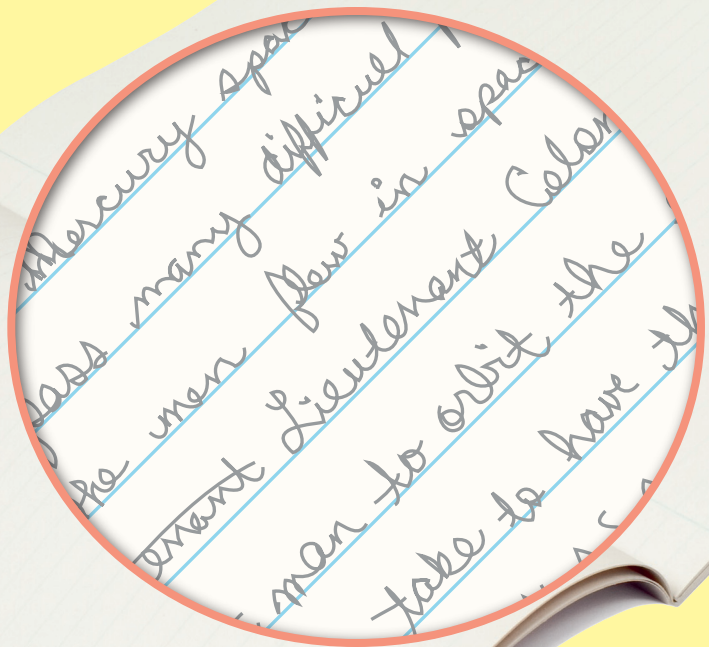 Mercury spac
pass many difficult
he men flew in spac
enant Lieutenant Colon
man to orbit the
take to have th